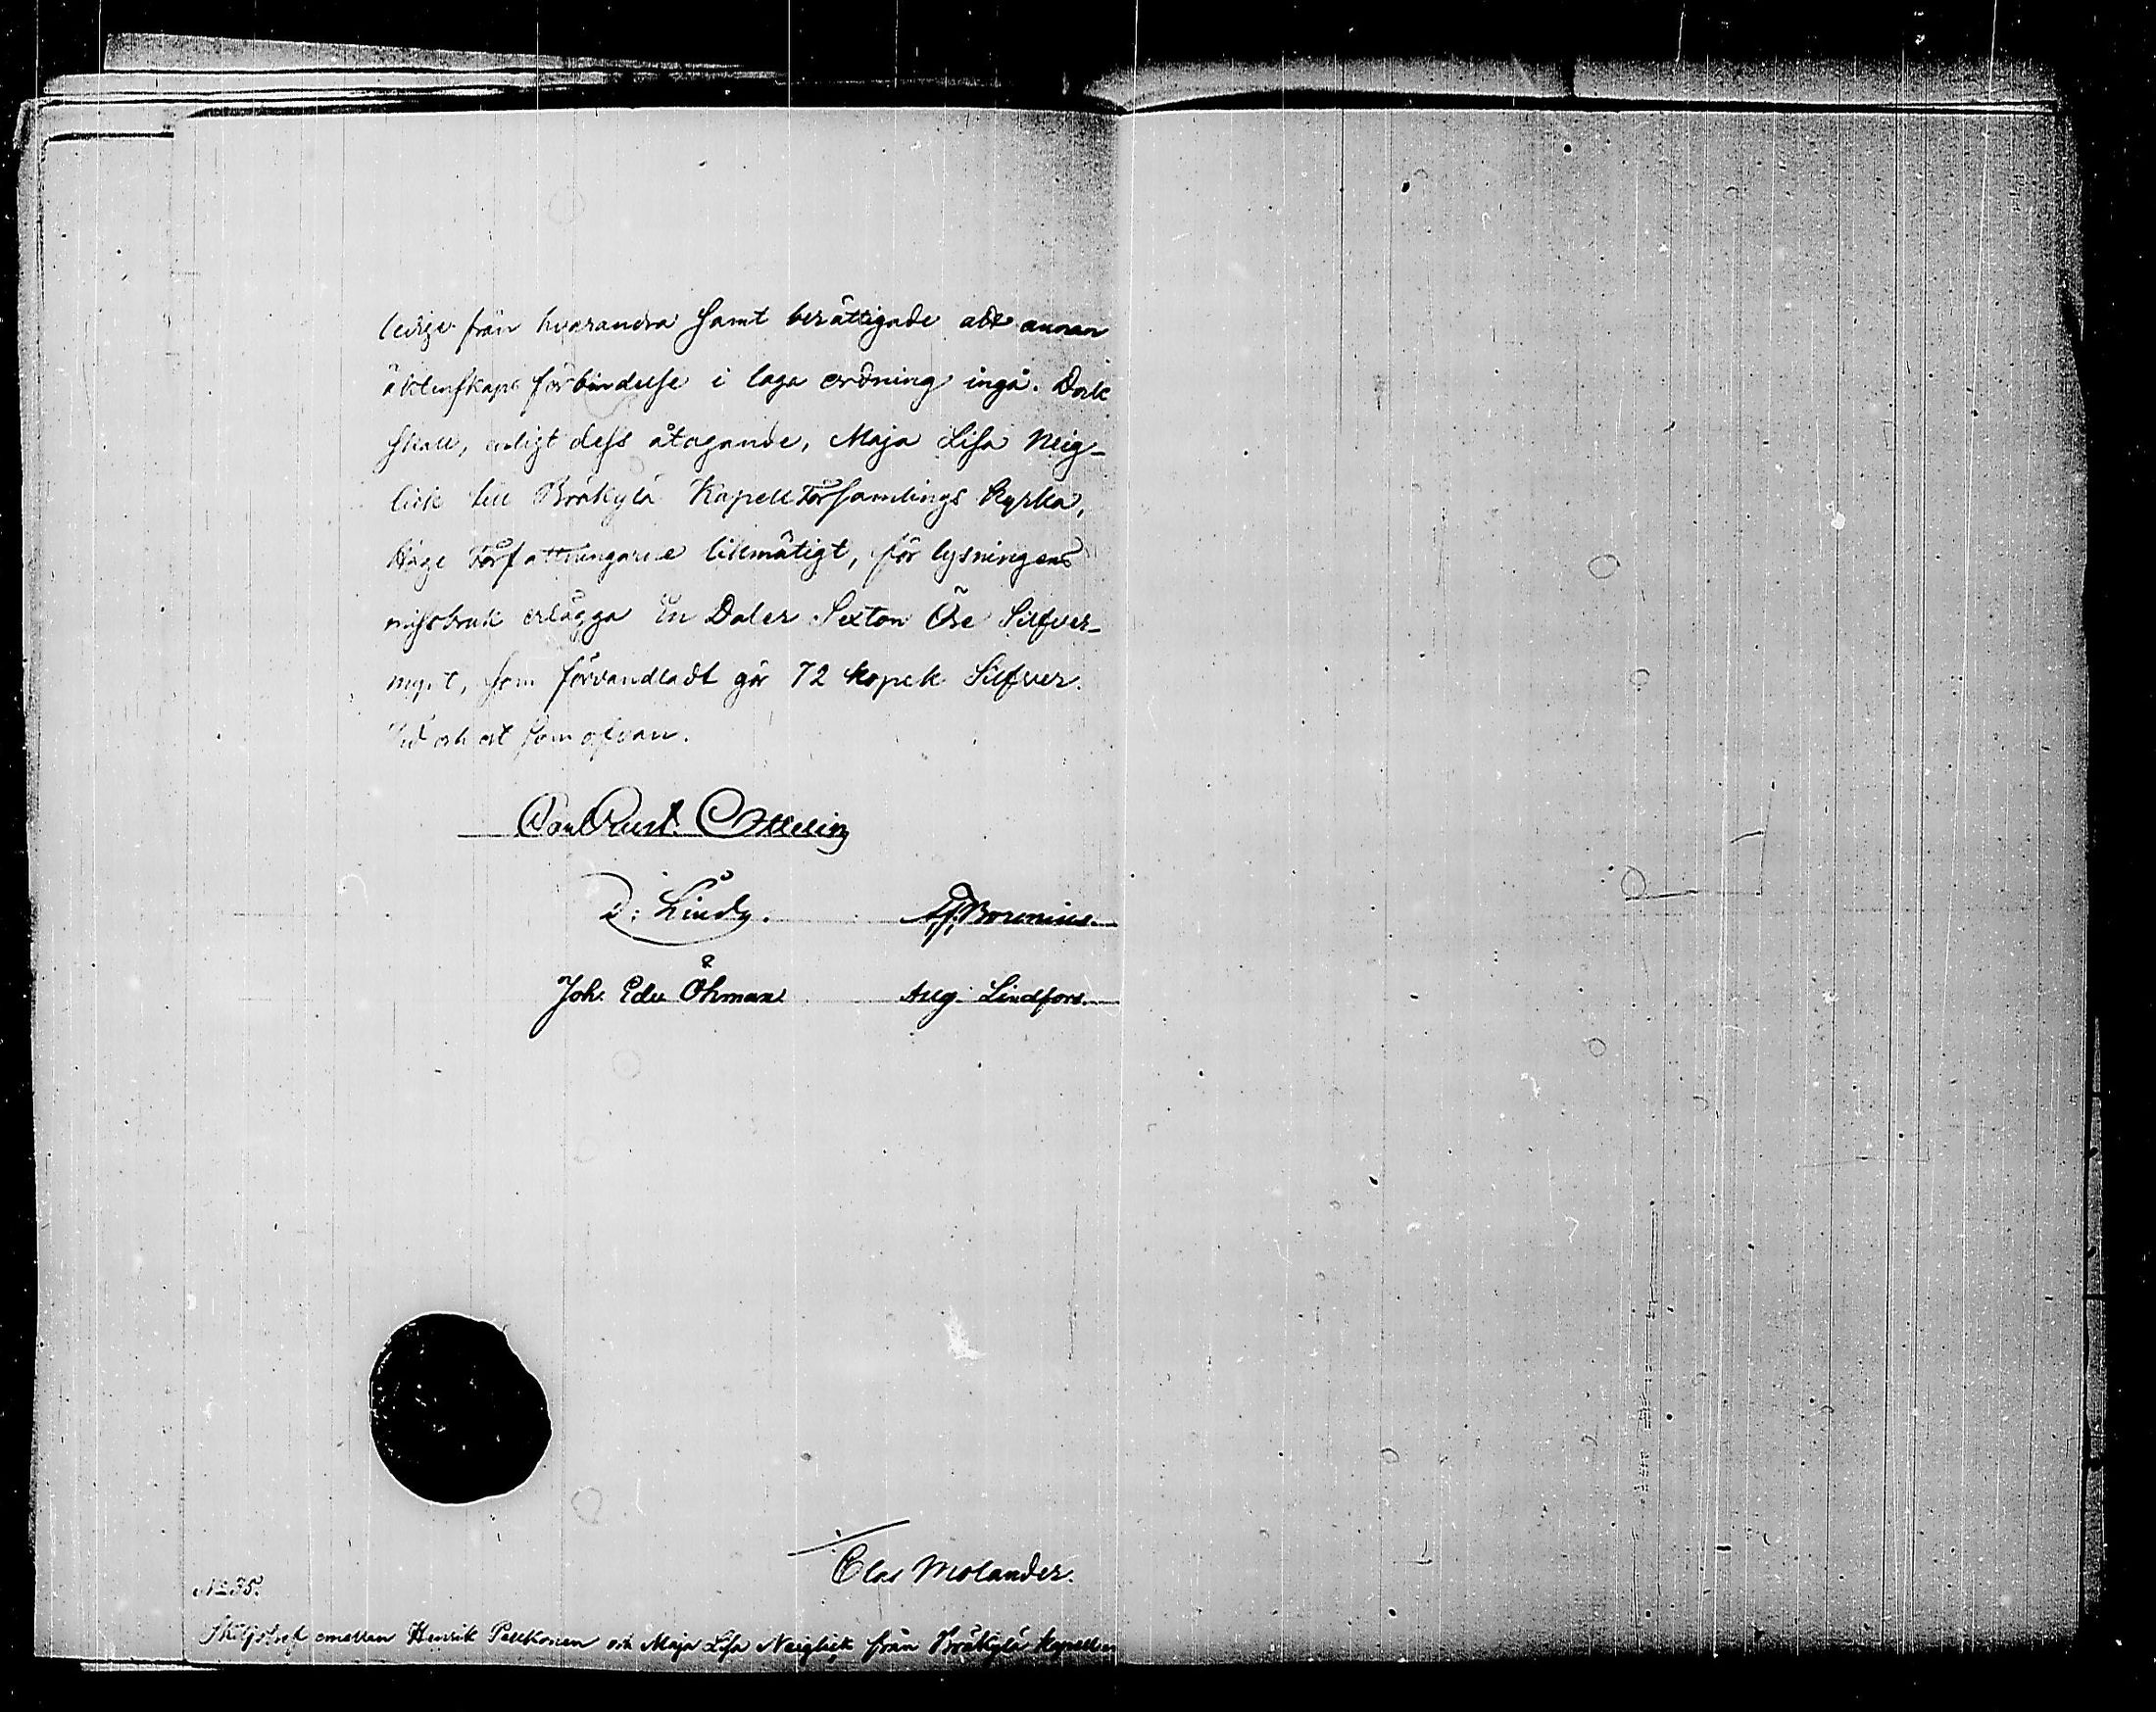 ledige från hvarandra samt berättigade att annan
äktenskaps förbindelse i laga ordning ingå. Dock
skall, enligt dess åtagande, Maja Lisa Neig-
lick till Bräkylä Kapellförsamlings kyrka,
Höge Författningarne likmätigt, för lysningens
missbruk erlägga En Daler Sexton Öre Silfver-
mynt, som förvandladt gör 72 kopek Silfver.
Tid och ort som ofvan.
D: Lindh. Borenius.
Joh. Edv. Öhman Aug. Lindfors.
Clas Molander.
No 35.
Skiljobref emellan Henrik Pelkonen och Maja Lisa Neiglick från Bräkylä kapell